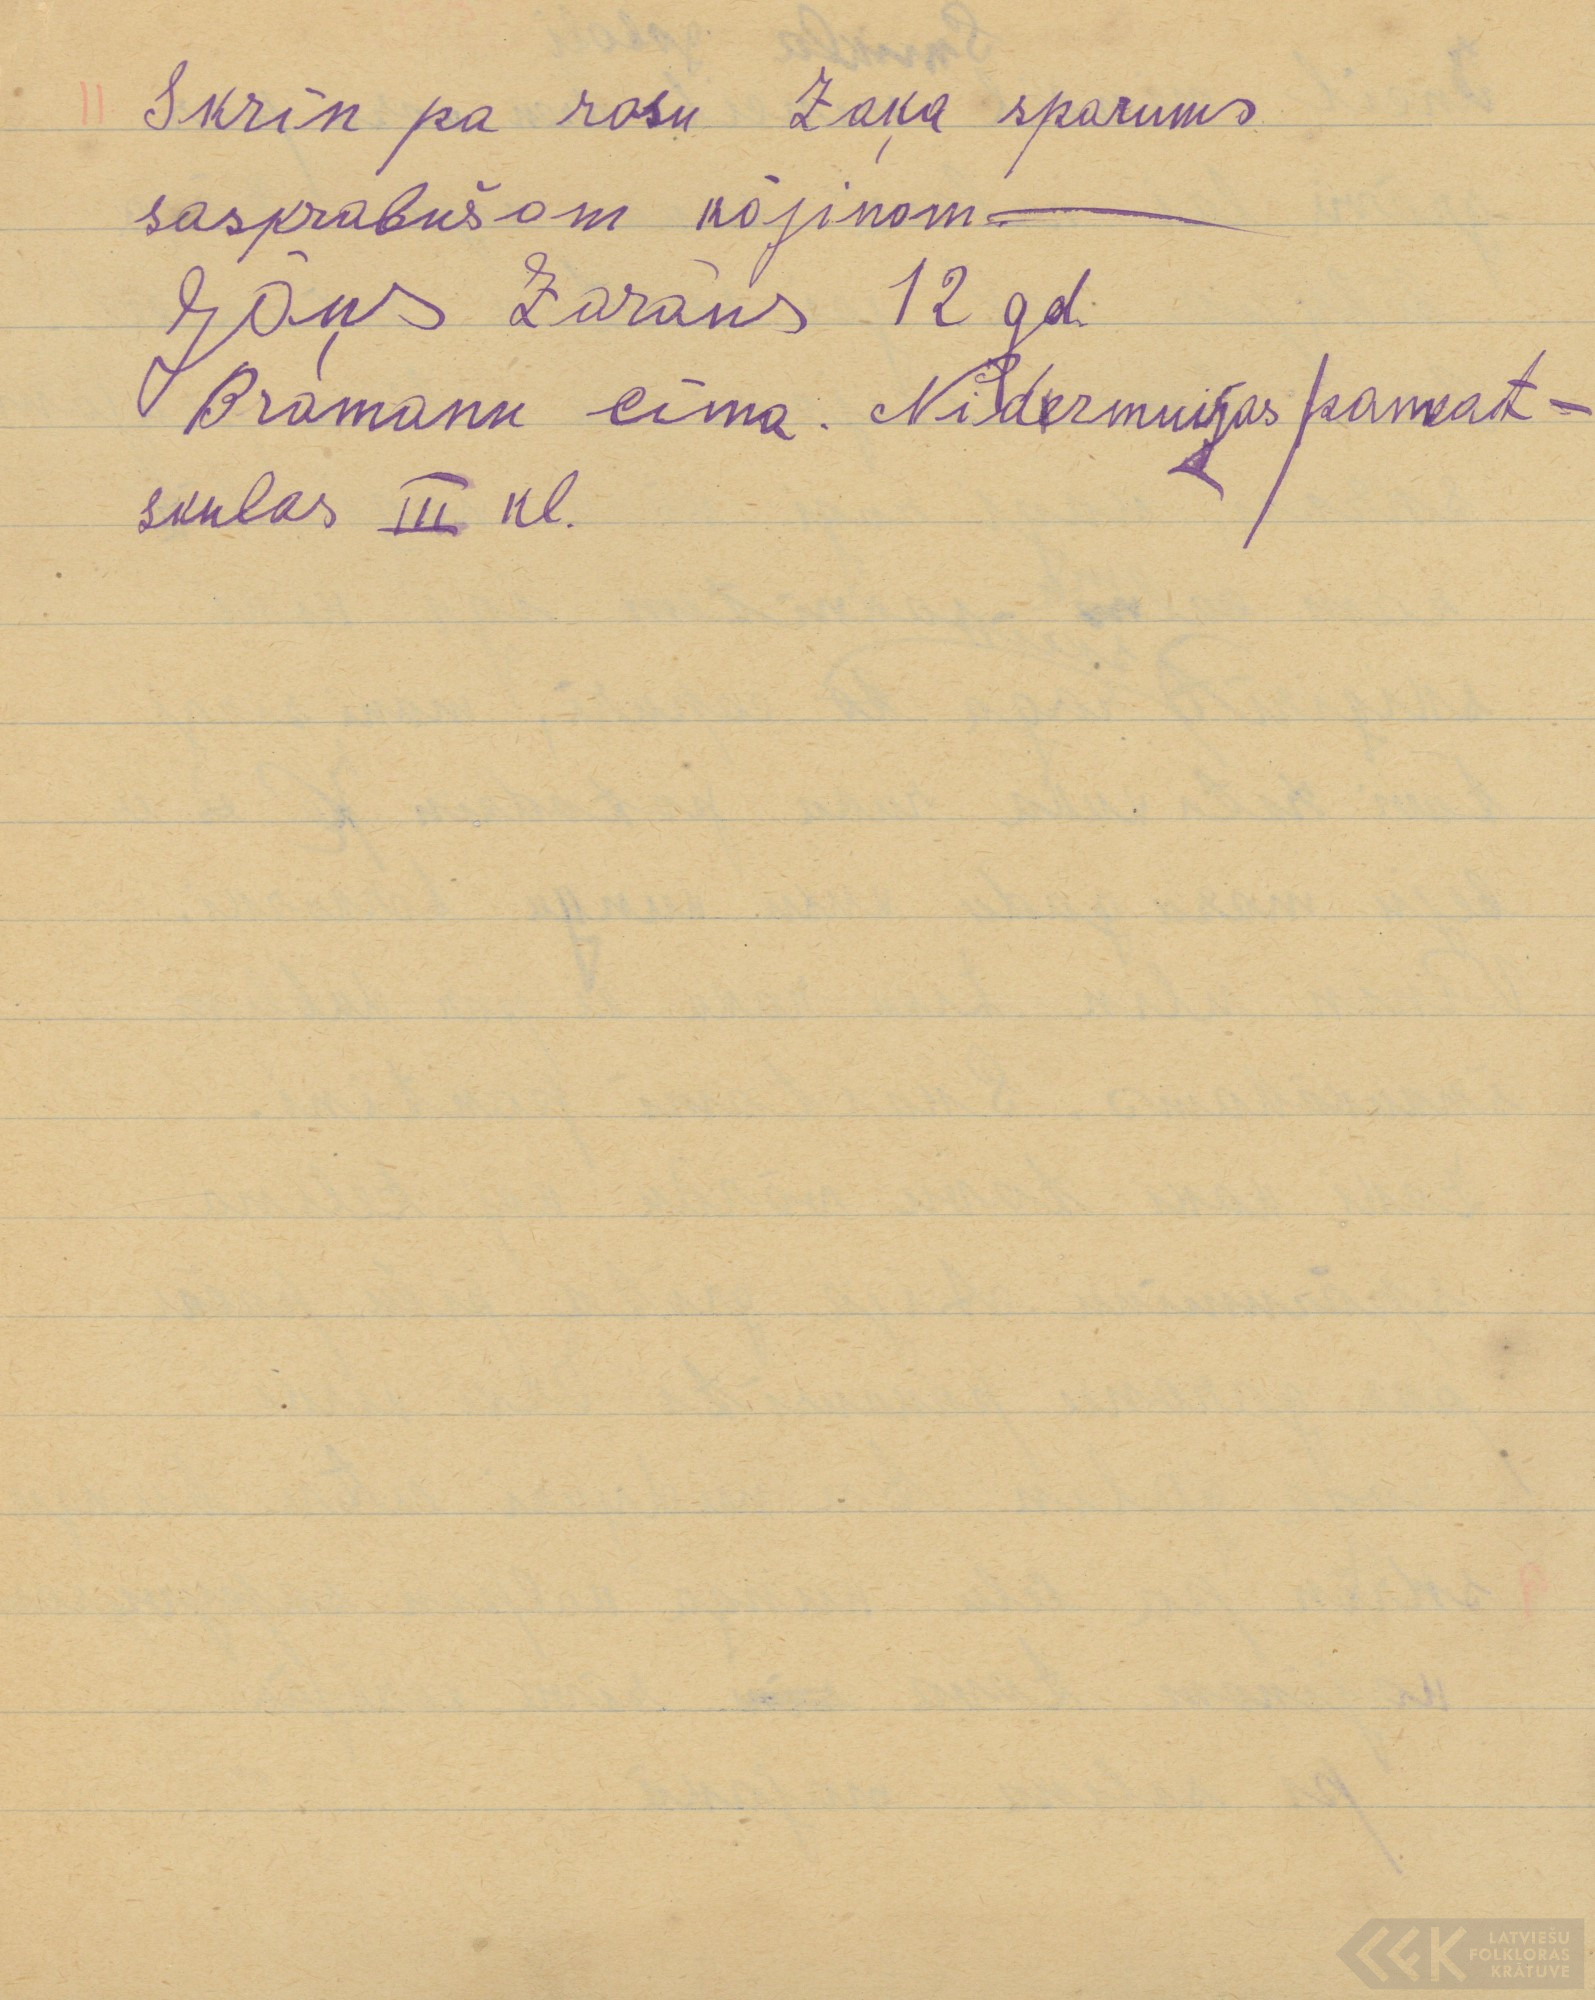 11 Skrīn pa rosu Zaķa sparums
sasprabušom kōjinom
Jōņs Zarāns 12 gd.
Bramanu cīma. Nīdermuižas pamat-
skulas III kl.
LATVIEŠU
FOLKLORAS
KRĀTUVE